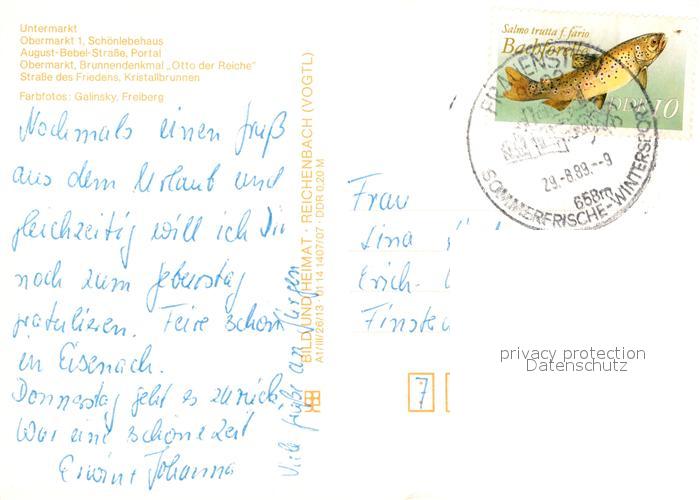 Untermarkt
Obermarkt 1, Schönlebehaus
August-Bebel-Straße, Portal
Obermarkt, Brunnendenkmal „Otto der Reiche"
Straße des Friedens, Kristallbrunnen
Farbfotos: Galinsky, Freiberg
Nochmals einen Gruß
aus dem Urlaub und
gleichzeitig will ich Dir
noch zum Geburtstag
gratulieren. Feire schön
in Eisenach.
Donnerstag geht es zurück.
War eine schöne Zeit
Erwin + Johanna
Viele Grüße an Jürgen
BILD UND HEIMAT · REICHENBACH (VOGTL)
A1/III/26/13 · 01 14 1407/07 · DDR 0,20 M
Salmo trutta f. fario
Bachforelle
DDR 10
29.-8.89.--9
658m
SOMMERFRISCHE-WINTERSPORT
Frau
Lina
Erich-
7
privacy protection
Datenschutz